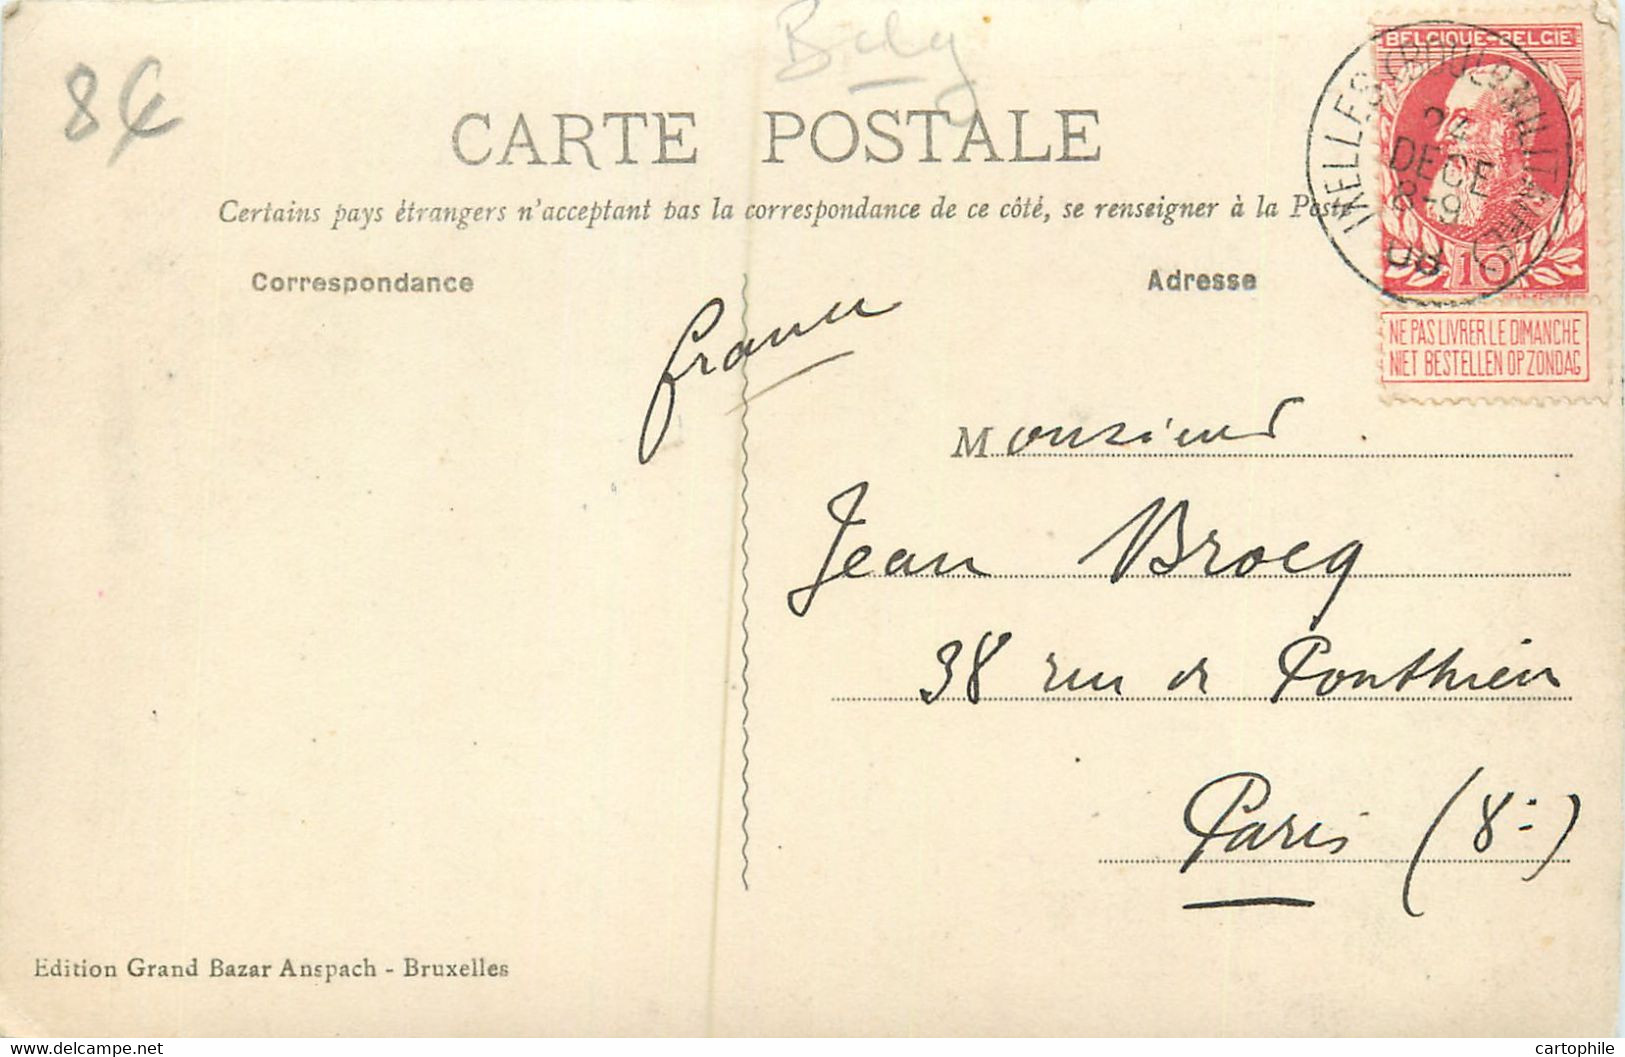 Bely
8€
CARTE POSTALE
Certains pays étrangers n'acceptant pas la correspondance de ce côté, se renseigner à la Poste
Correspondance
Adresse
BELGIQUE-BELGIË
10
NE PAS LIVRER LE DIMANCHE
NIET BESTELLEN OP ZONDAG
IXELLES (BOULD MILITAIRE)
24
DECE
8-9
08
France
Monsieur
Jean Brocq
38 rue de Ponthieu
Paris (8e)
Edition Grand Bazar Anspach - Bruxelles
delcampe.net
cartophile